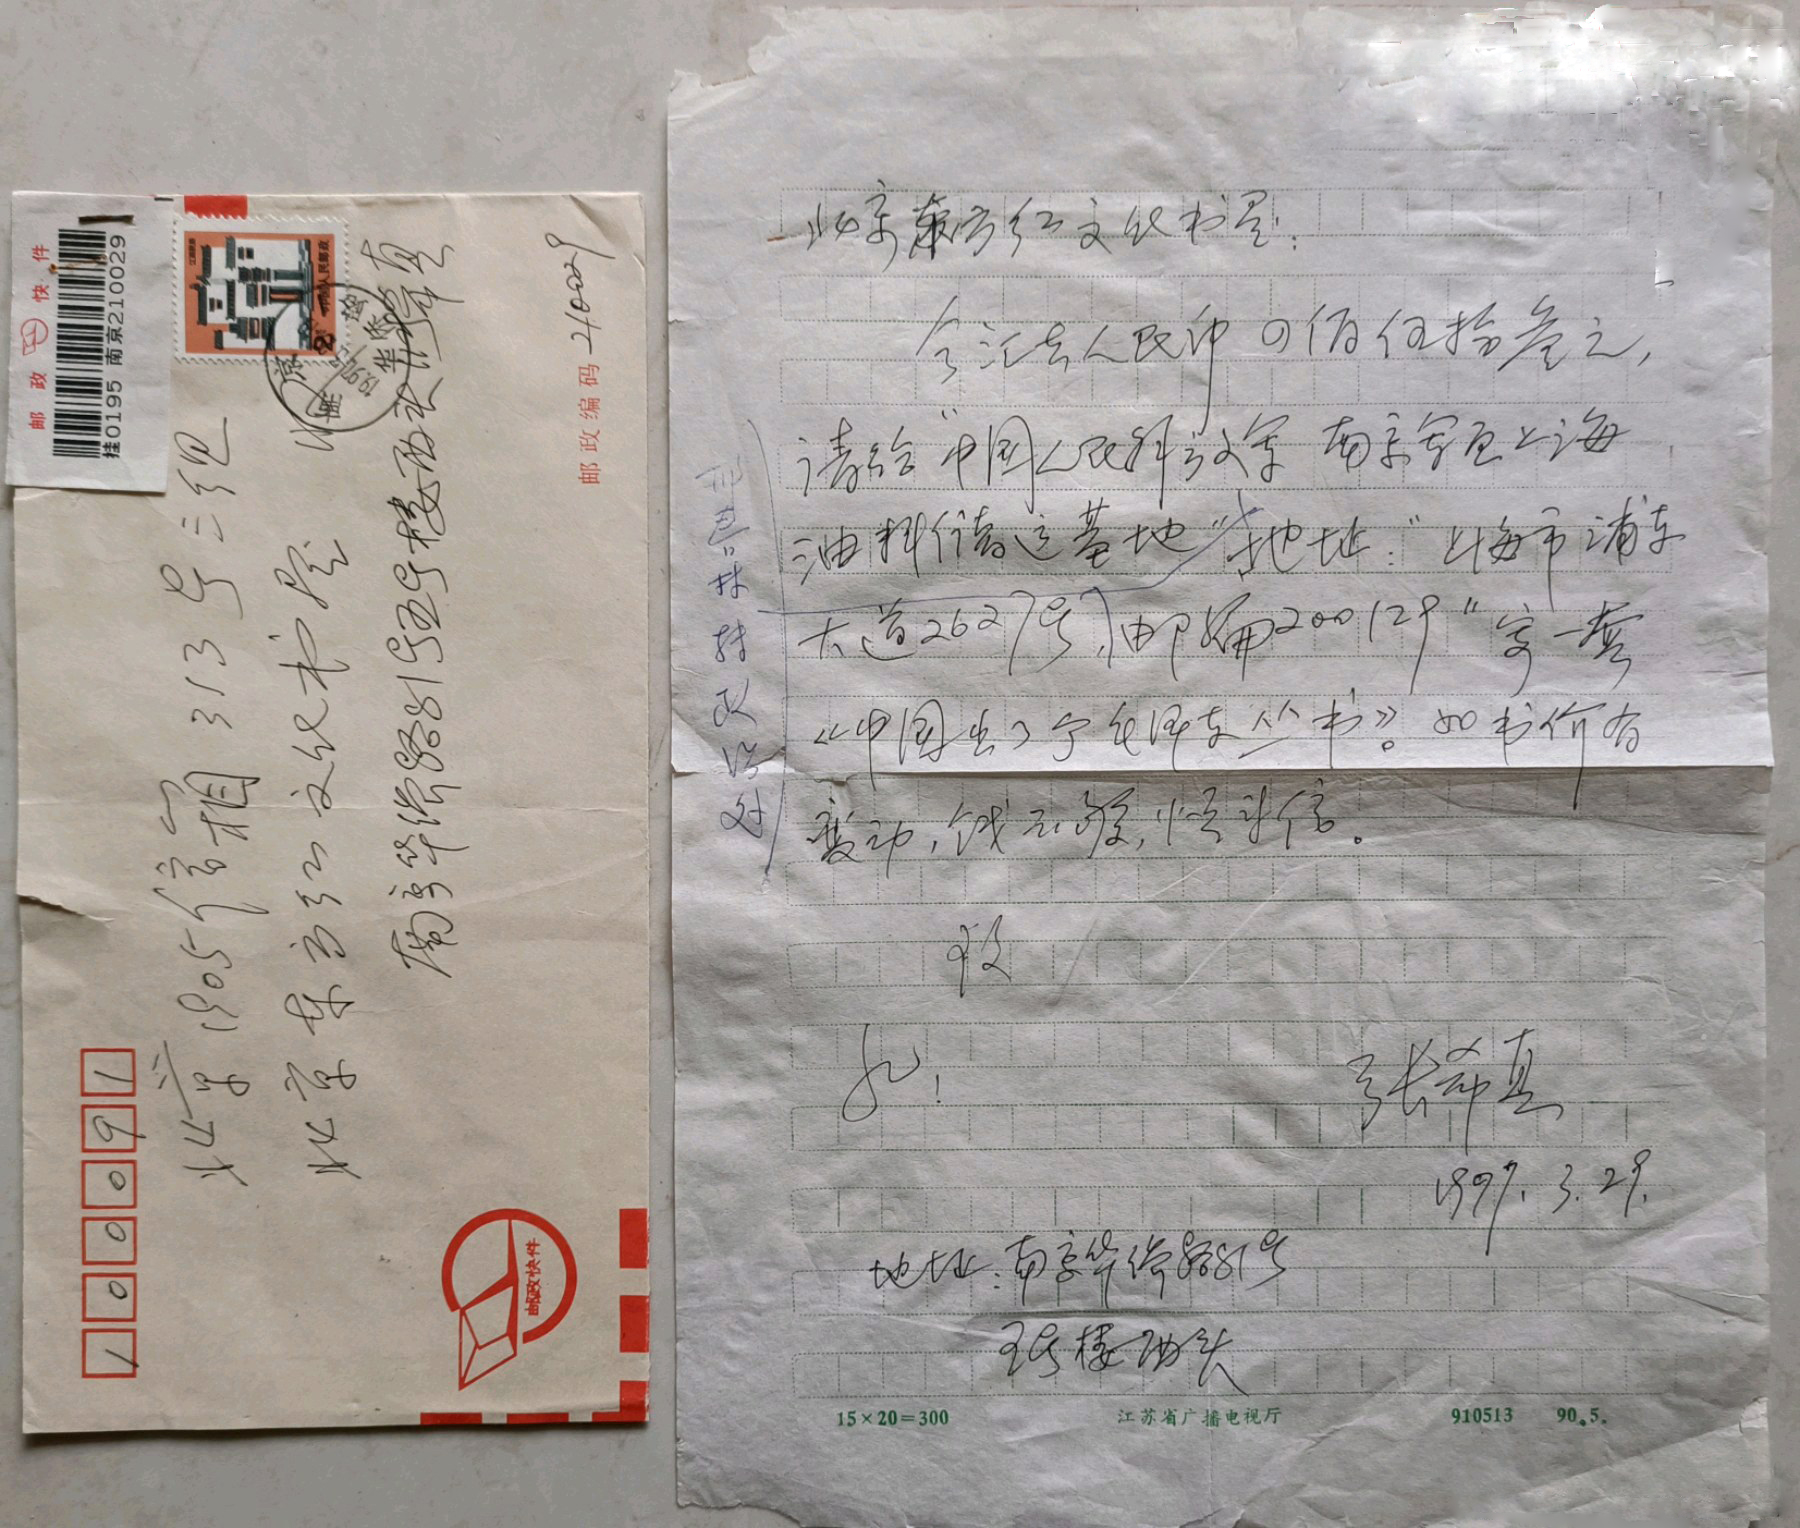 邮政快件
挂0195 南京210029
100091
北京1905信箱 313号三组
北京东方红文化书屋
南京华侨路81号5号楼西头 张希真
邮政编码 210029
邮政快件
北京东方红文化书屋:
今汇去人民币四佰伍拾叁元,
请给“中国人民解放军 南京军区上海
油料储运基地” 地址:“上海市浦东
大道2627号,邮编200129”寄一套
《中国出了个毛泽东丛书》。如书价有
变动,钱不够,请来信。
致
礼!
张希真
1997.3.29.
地址:南京华侨路81号
5号楼西头
15×20=300
江苏省广播电视厅
910513 90.5.